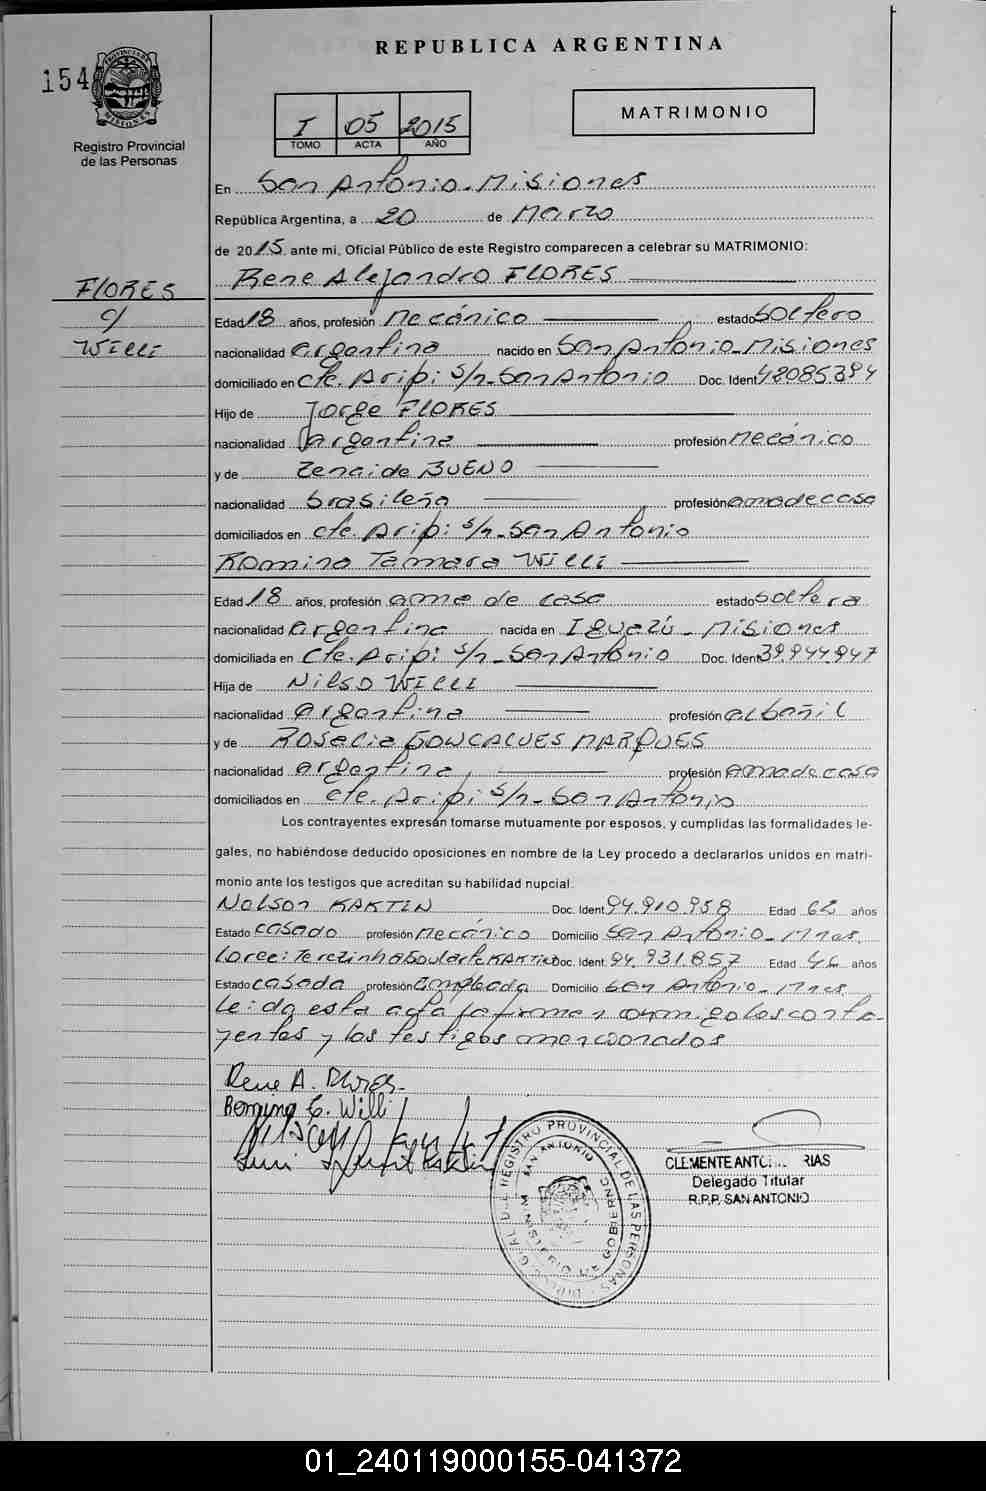 REPUBLICA ARGENTINA
154
Registro Provincial
de las Personas
I 05 2015
TOMO ACTA AÑO
MATRIMONIO
En San Antonio - Misiones
República Argentina, a 20 de Marzo
de 2015 ante mi, Oficial Público de este Registro comparecen a celebrar su MATRIMONIO:
Rene Alejandro FLORES
FLORES
c/
WILLI
Edad 18 años, profesión Mecánico estado Soltero
nacionalidad argentina nacido en San Antonio - Misiones
domiciliado en Cte. Aripi s/n - San Antonio Doc. Ident 42085394
Hijo de Jorge FLORES
nacionalidad argentina profesión Mecánico
y de Zenaide BUENO
nacionalidad brasileña profesión ama de casa
domiciliados en cte. Aripi s/n - San Antonio
Romina Tamara WILLI
Edad 18 años, profesión ama de casa estado Soltera
nacionalidad Argentina nacida en Iguazú - Misiones
domiciliada en Cte. Aripi s/n - San Antonio Doc. Ident 39.944.947
Hija de Nilso WILLI
nacionalidad argentina profesión albañil
y de Rosalia GONCALVES MARQUES
nacionalidad argentina profesión ama de casa
domiciliados en cte. Aripi s/n - San Antonio
Los contrayentes expresan tomarse mutuamente por esposos, y cumplidas las formalidades le-
gales, no habiéndose deducido oposiciones en nombre de la Ley procedo a declararlos unidos en matri-
monio ante los testigos que acreditan su habilidad nupcial:
Nelson KAKTIN Doc. Ident 94.910.958 Edad 62 años
Estado casado profesión mecánico Domicilio San Antonio - Mnes.
Loreci Terezinha Goularte KAKTIN Doc. Ident. 94.931.857 Edad 46 años
Estado casada profesión empleada Domicilio San Antonio - Mnes.
Leída esta acta la firman conmigo los contra-
yentes y los testigos mencionados
Rene A. Flores
Romina T. Willi
DIR. GRAL. DEL REGISTRO PROVINCIAL DE LAS PERSONAS
SAN ANTONIO
MISIONES
CLEMENTE ANTO RIAS
Delegado Titular
R.P.P. SAN ANTONIO
01_240119000155-041372